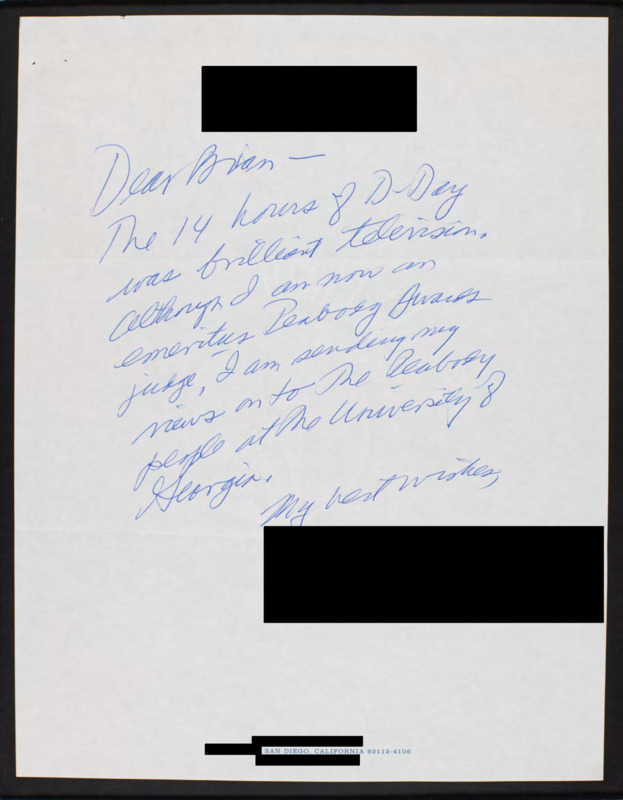 Dear Brian —
The 14 hours of D-Day
was brilliant television.
Although I am now an
emeritus Peabody Awards
judge, I am sending my
views on to the Peabody
people at the University of
Georgia.
My best wishes,
SAN DIEGO, CALIFORNIA 92112-4106